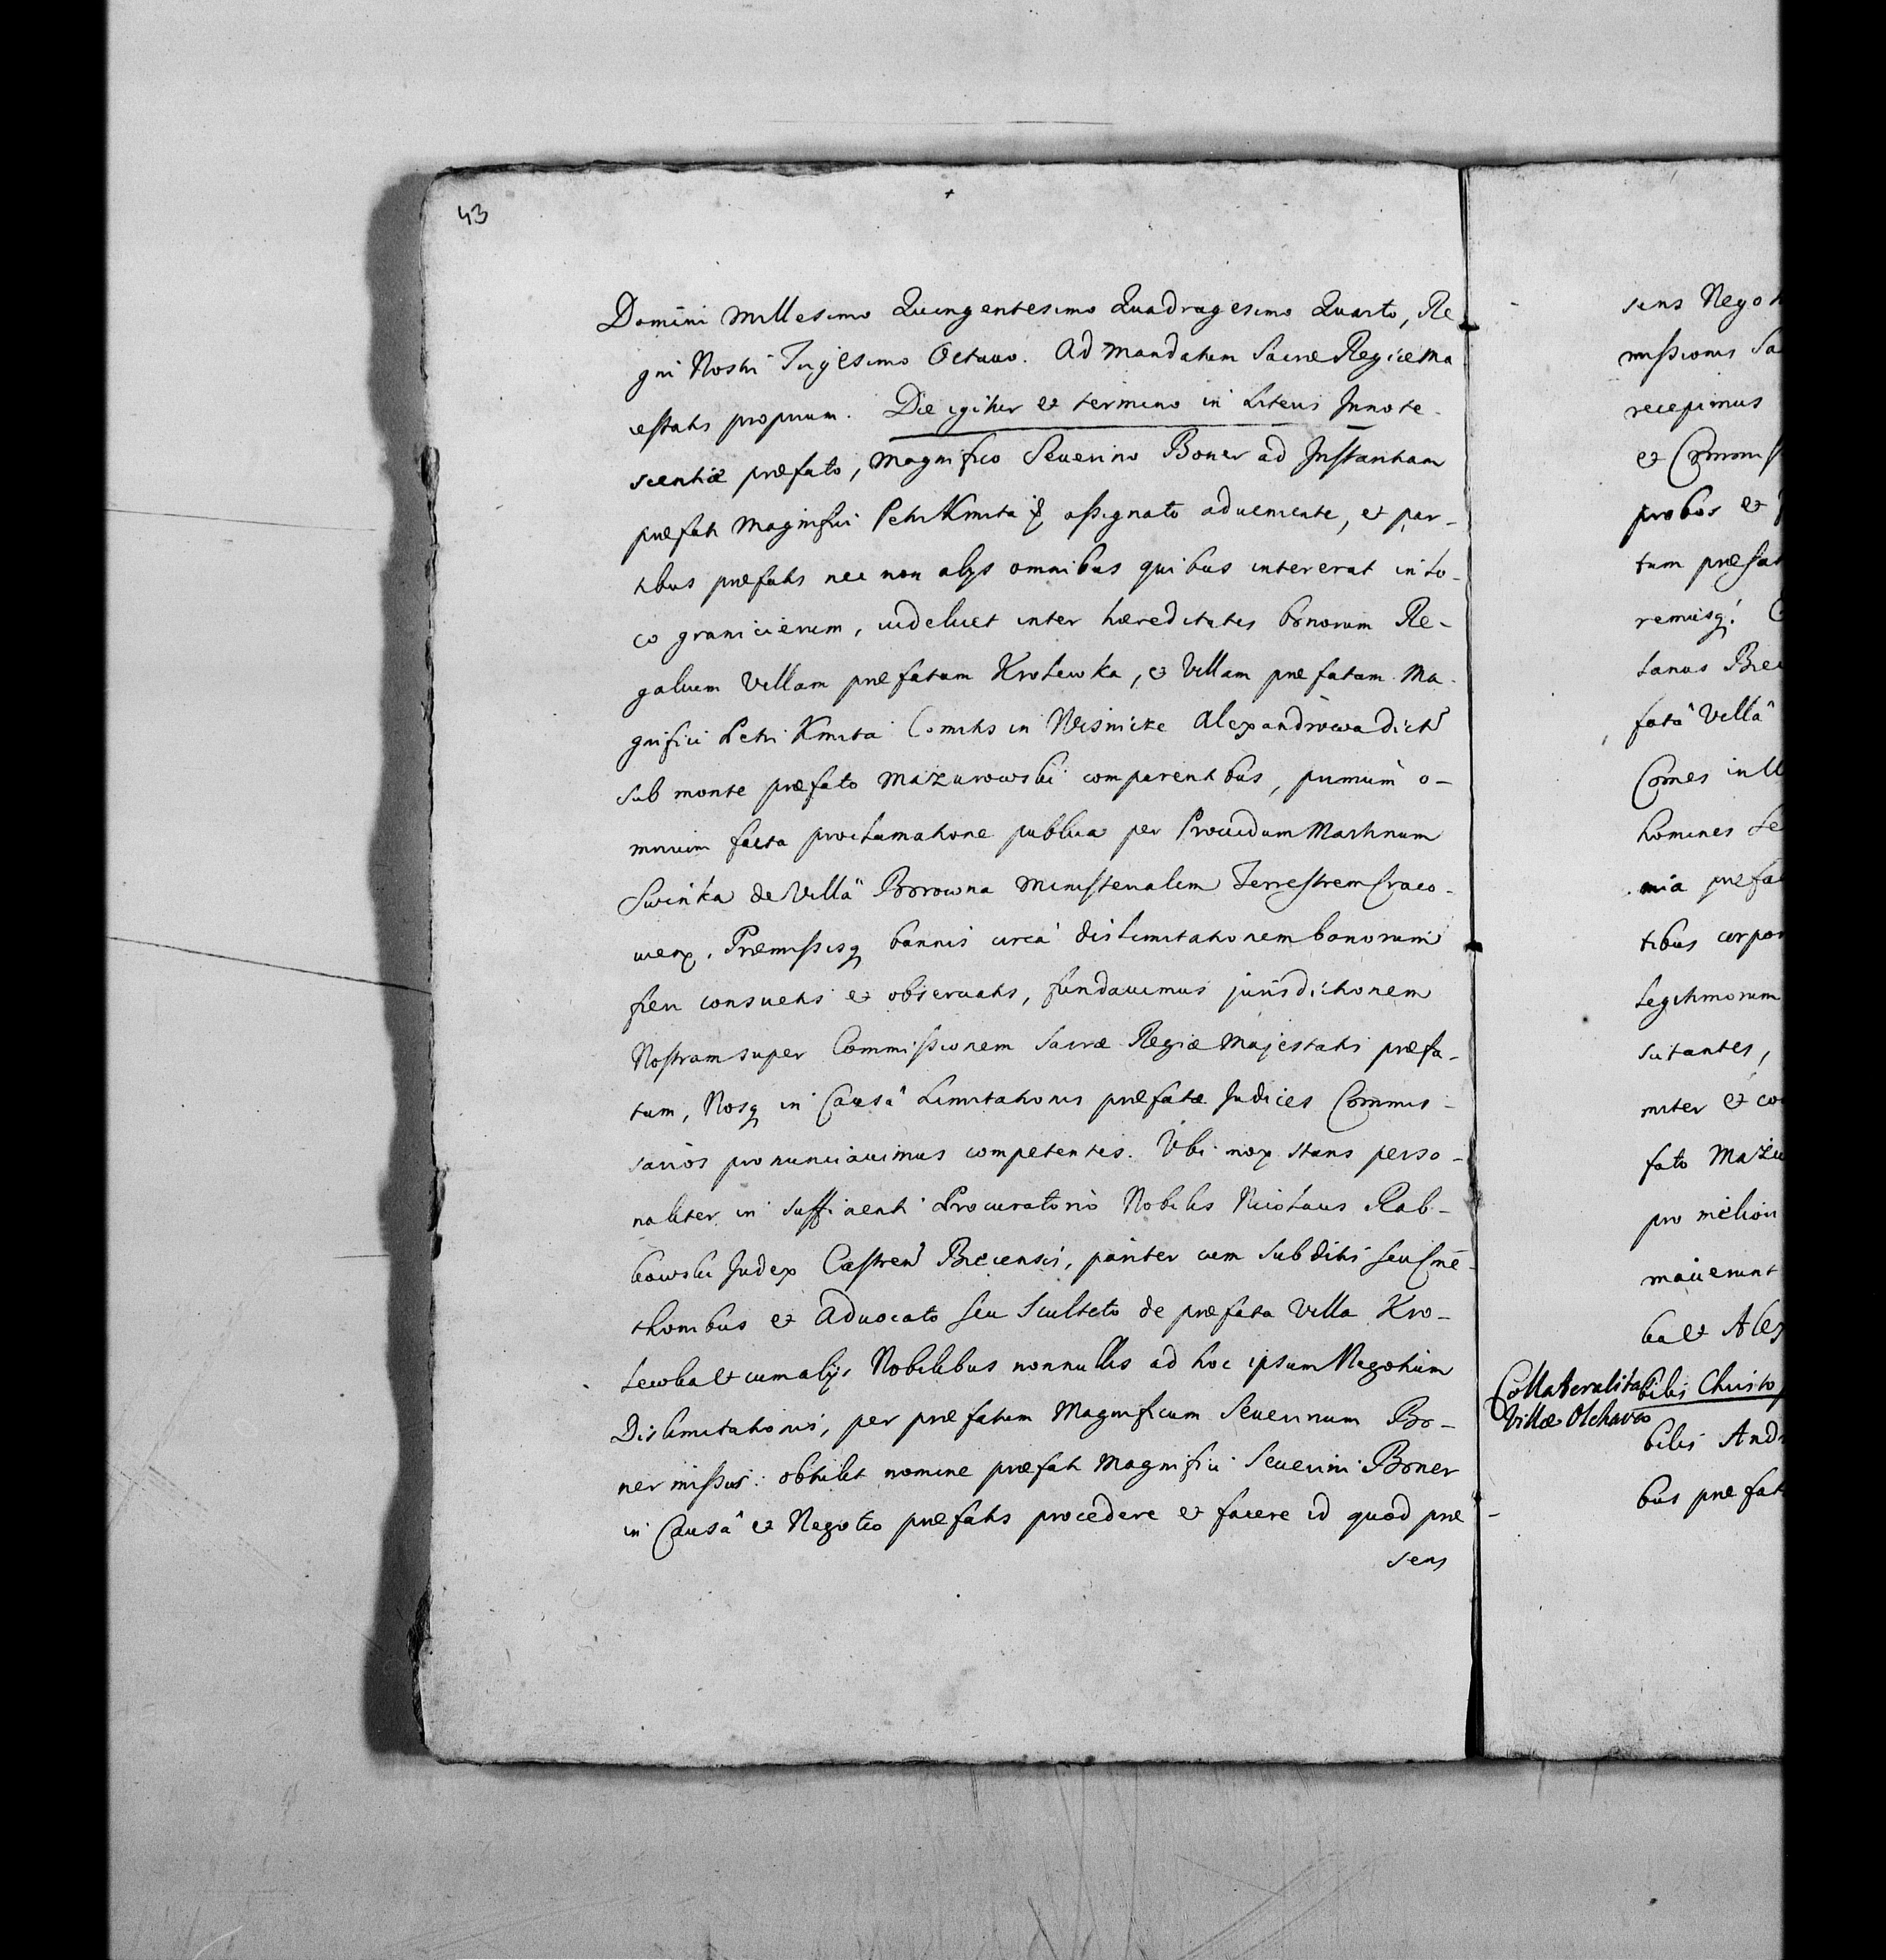 43
Domini Millesimo Quingentesimo Quadragesimo Quarto, Re
gni Nostri Trigesimo Octavo. Ad Mandatum Sacræ Regiæ Ma
iestatis proprium. Die igitur et termino in Literis Innote-
scentiæ præfato, Magnifico Severino Boner ad Instantiam
præfati Magnifici Petri Kmita assignato adveniente, et par-
tibus præfatis nec non alijs omnibus quibus intererat in lo-
co granicierum, videlicet inter hæreditates bonorum Re-
galium Villam præfatam Krolewka, et Villam præfatam Ma-
gnifici Petri Kmita Comitis in Wisnicze Alexandrowa dict
sub monte præfato Mazurowski comparentibus, primum o-
mnium facta proclamatione publica per Providum Martinum
Swinka de Villâ Borowna Ministerialem Terrestrem Craco-
vien. Præmissisq bannis circa dislimitationem bonorum
fieri consuetis et observatis, fundavimus jurisdictionem
Nostram super Commissionem Sacræ Regiæ Majestatis præfa-
tam, Nosq in Causâ Limitationis præfatæ Judices Commis-
sarios pronunciavimus competentes. Ubi mox stans perso-
naliter in sufficienti Procuratorio Nobilis Nicolaus Rab-
kowski Judex Castren Biecensis, pariter cum subditis seu Cme-
thonibus et Advocato seu Sculteto de præfata Villa Kro-
lewka et cum alijs Nobilibus nonnullis ad hoc ipsum Negotium
Dislimitationis, per præfatum Magnificum Severinum Bo-
ner missus: obtulit nomine præfati Magnifici Severini Boner
in Causâ et Negotio præfatis procedere et facere id quod præ
sens
sens Nego
missionis Sa
recepimus
et Commiss
probos et
tum præfat
remusq
tanus Biec
fatâ Villâ
Comes in W
homines
mia præfa
tibus corpor
Legitimorum
scitantes,
niter et co
fato Mazu
pro meliori
maverunt
ka et Alex
Collateralitas
Villæ Olchawa
bilis Christo
bilis Andr
bus præfat